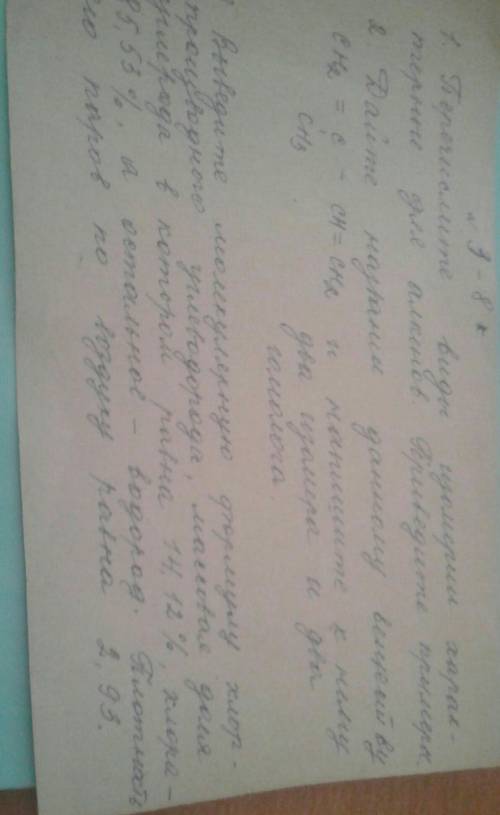 « 9 - 8 к
1. Перечислите виды изомерии харак-
терные для алкинов. Приведите примеры.
2. Дайте название данному веществу
CH2 = C - CH = CH2 и напишите к нему
CH3 два изомера и два
гомолога.
Выведите молекулярную формулу хлор-
производного углеводорода, массовая доля
углерода в котором равна 14,12%, хлора -
83,53%, а остальное - водород. Плотность
его паров по воздуху равна 2,93.